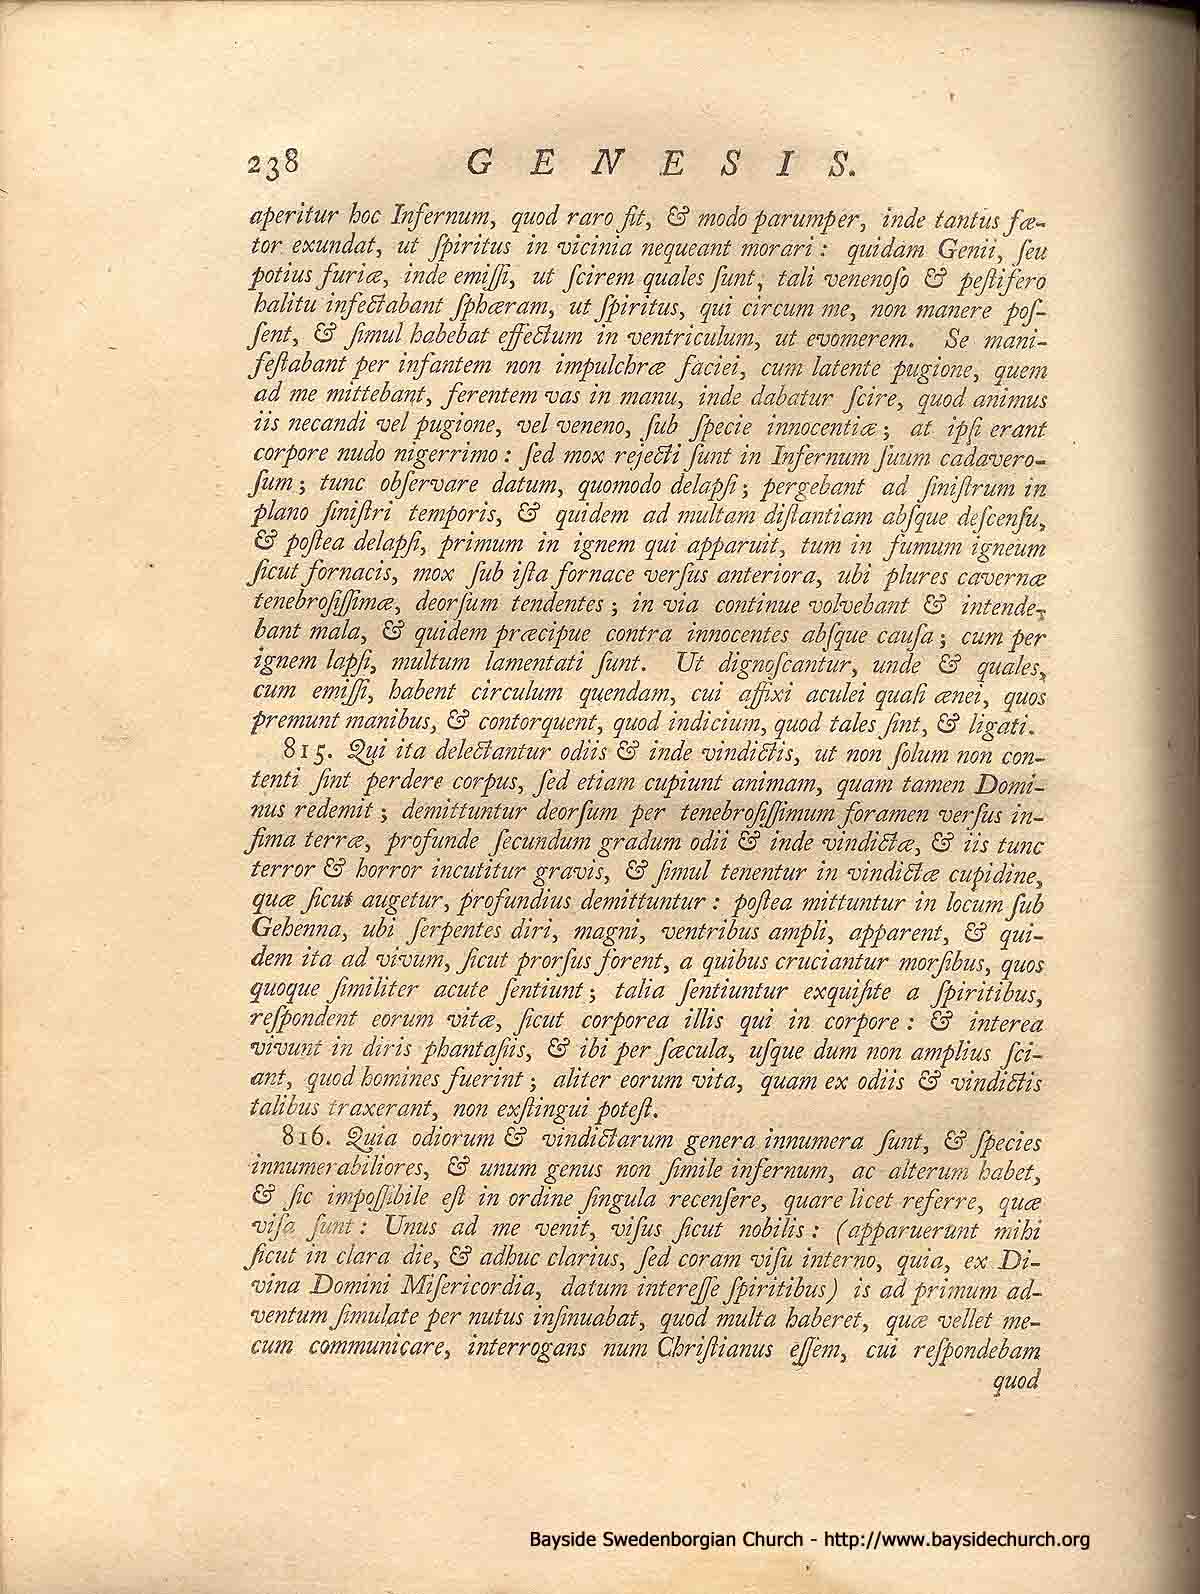 238 GENESIS.
aperitur hoc Infernum, quod raro fit, & modo parumper, inde tantus fœ-
tor exundat, ut ſpiritus in vicinia nequeant morari : quidam Genii, ſeu
potius furiæ, inde emiſſi, ut ſcirem quales ſunt, tali venenoſo & peſtifero
halitu infectabant ſphæram, ut ſpiritus, qui circum me, non manere poſ-
ſent, & ſimul habebat effectum in ventriculum, ut evomerem. Se mani-
feſtabant per infantem non impulchræ faciei, cum latente pugione, quem
ad me mittebant, ferentem vas in manu, inde dabatur ſcire, quod animus
iis necandi vel pugione, vel veneno, ſub ſpecie innocentiæ ; at ipſi erant
corpore nudo nigerrimo : ſed mox rejecti ſunt in Infernum ſuum cadavero-
ſum ; tunc obſervare datum, quomodo delapſi ; pergebant ad ſiniſtrum in
plano ſiniſtri temporis, & quidem ad multam diſtantiam abſque deſcenſu,
& poſtea delapſi, primum in ignem qui apparuit, tum in fumum igneum
ſicut fornacis, mox ſub iſta fornace verſus anteriora, ubi plures cavernæ
tenebroſiſſimæ, deorſum tendentes ; in via continue volvebant & intende-
bant mala, & quidem præcipue contra innocentes abſque cauſa ; cum per
ignem lapſi, multum lamentati ſunt. Ut dignoſcantur, unde & quales,
cum emiſſi, habent circulum quendam, cui affixi aculei quaſi ænei, quos
premunt manibus, & contorquent, quod indicium, quod tales ſint, & ligati.
815. Qui ita delectantur odiis & inde vindictis, ut non ſolum non con-
tenti ſint perdere corpus, ſed etiam cupiunt animam, quam tamen Domi-
nus redemit ; demittuntur deorſum per tenebroſiſſimum foramen verſus in-
fima terræ, profunde ſecundum gradum odii & inde vindictæ, & iis tunc
terror & horror incutitur gravis, & ſimul tenentur in vindictæ cupidine,
quæ ſicut augetur, profundius demittuntur : poſtea mittuntur in locum ſub
Gehenna, ubi ſerpentes diri, magni, ventribus ampli, apparent, & qui-
dem ita ad vivum, ſicut prorſus forent, a quibus cruciantur morſibus, quos
quoque ſimiliter acute ſentiunt ; talia ſentiuntur exquiſite a ſpiritibus,
reſpondent eorum vitæ, ſicut corporea illis qui in corpore : & interea
vivunt in diris phantaſiis, & ibi per ſæcula, uſque dum non amplius ſci-
ant, quod homines fuerint ; aliter eorum vita, quam ex odiis & vindictis
talibus traxerant, non exſtingui poteſt.
816. Quia odiorum & vindictarum genera innumera ſunt, & ſpecies
innumerabiliores, & unum genus non ſimile infernum, ac alterum habet,
& ſic impoſſibile eſt in ordine ſingula recenſere, quare licet referre, quæ
viſa ſunt : Unus ad me venit, viſus ſicut nobilis : (apparuerunt mihi
ſicut in clara die, & adhuc clarius, ſed coram viſu interno, quia, ex Di-
vina Domini Miſericordia, datum intereſſe ſpiritibus) is ad primum ad-
ventum ſimulate per nutus inſinuabat, quod multa haberet, quæ vellet me-
cum communicare, interrogans num Chriſtianus eſſem, cui reſpondebam
quod
Bayside Swedenborgian Church - http://www.baysidechurch.org